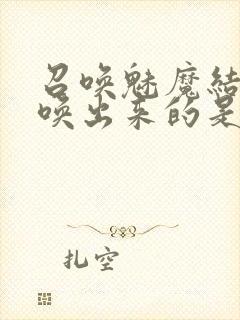 召唤魅魔结
唤出来的是
扎空